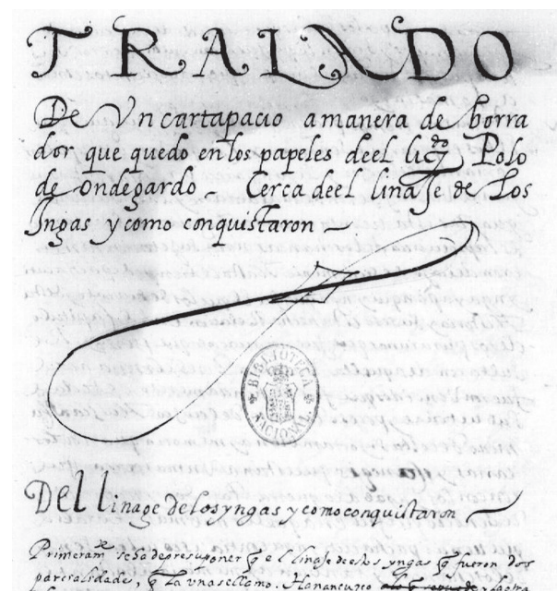 TRALADO
De Vn cartapacio a manera de borra
dor que quedo en los papeles deel licdo Polo
de Ondegardo Cerca deel linaJe de Los
Yngas y como conquistaron
BIBLIOTECA
NACIONAL
Del linage de los yngas y como conquistaron
Primeramte se de presuponer q̃ e linaJe destos yngas q̃ fueron dos
parcialidades, q̃ La vna se llamo. Hanan cuzco